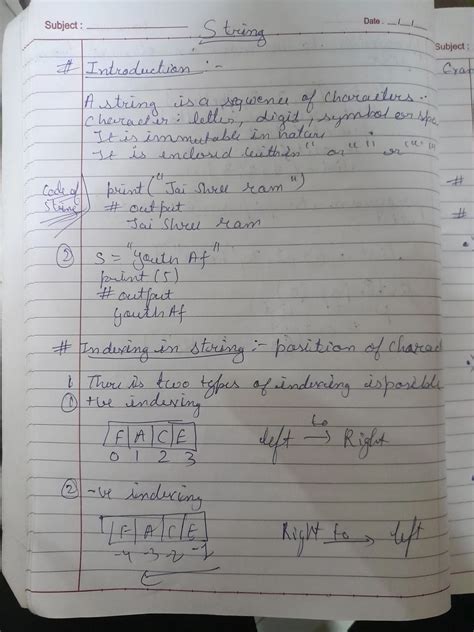 Subject :
Date : / /
String
# Introduction :-
A string is a sequence of characters.
Character : letter, digit, symbol or spe
It is immutable in natur
It is enclosed within ' ' or " " or
Code of
String
print("Jai Shree ram")
# output
Jai Shree ram
② S = "Youth Af"
print(S)
# output
youth Af
# Indexing in string :- position of charac
1 There is two types of indexing is posible
① +ve indexing
F A C E
0 1 2 3
left to → Right
② -ve indexing
F A C E
-4 -3 -2 -1
Right to → left
Subject :
#
#